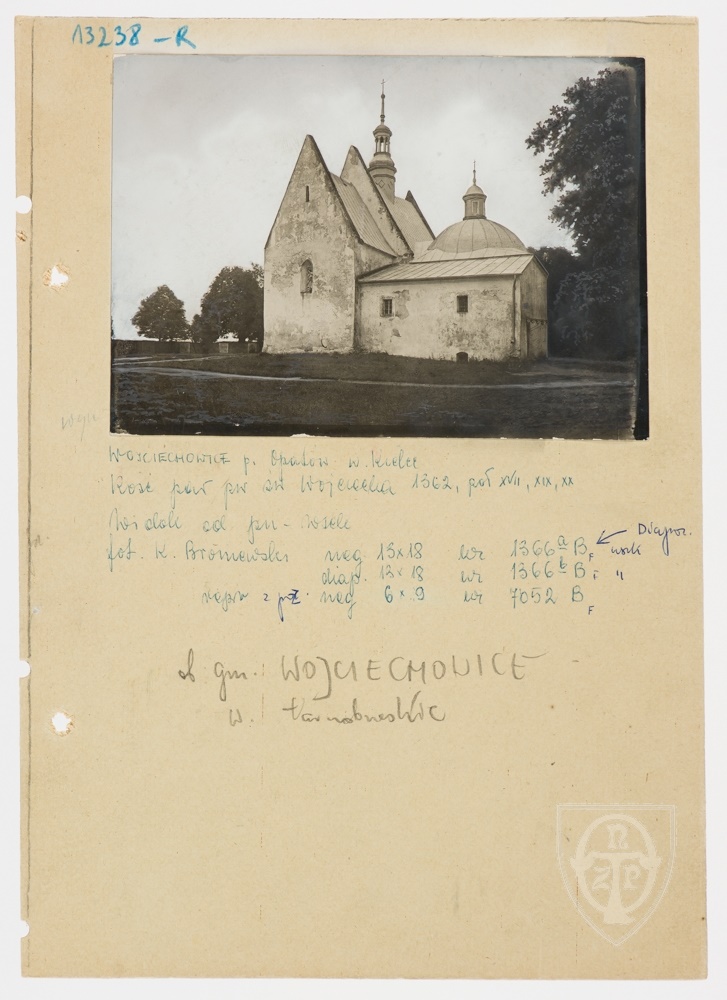 13238 – R
WOJCIECHOWICE p. Opatów w. Kielce
Kość par pw św Wojciecha 1362, poł XVII, XIX, XX
Widok od pn-wsch
fot. K. Broniewski neg 13x18 nr 1366a BF Diapoz.
diap. 13x18 nr 1366b BF "
repr z poz. neg 6x9 nr 7052 BF
ob gm. WOJCIECHOWICE
w. tarnobrzeskie
TNZP